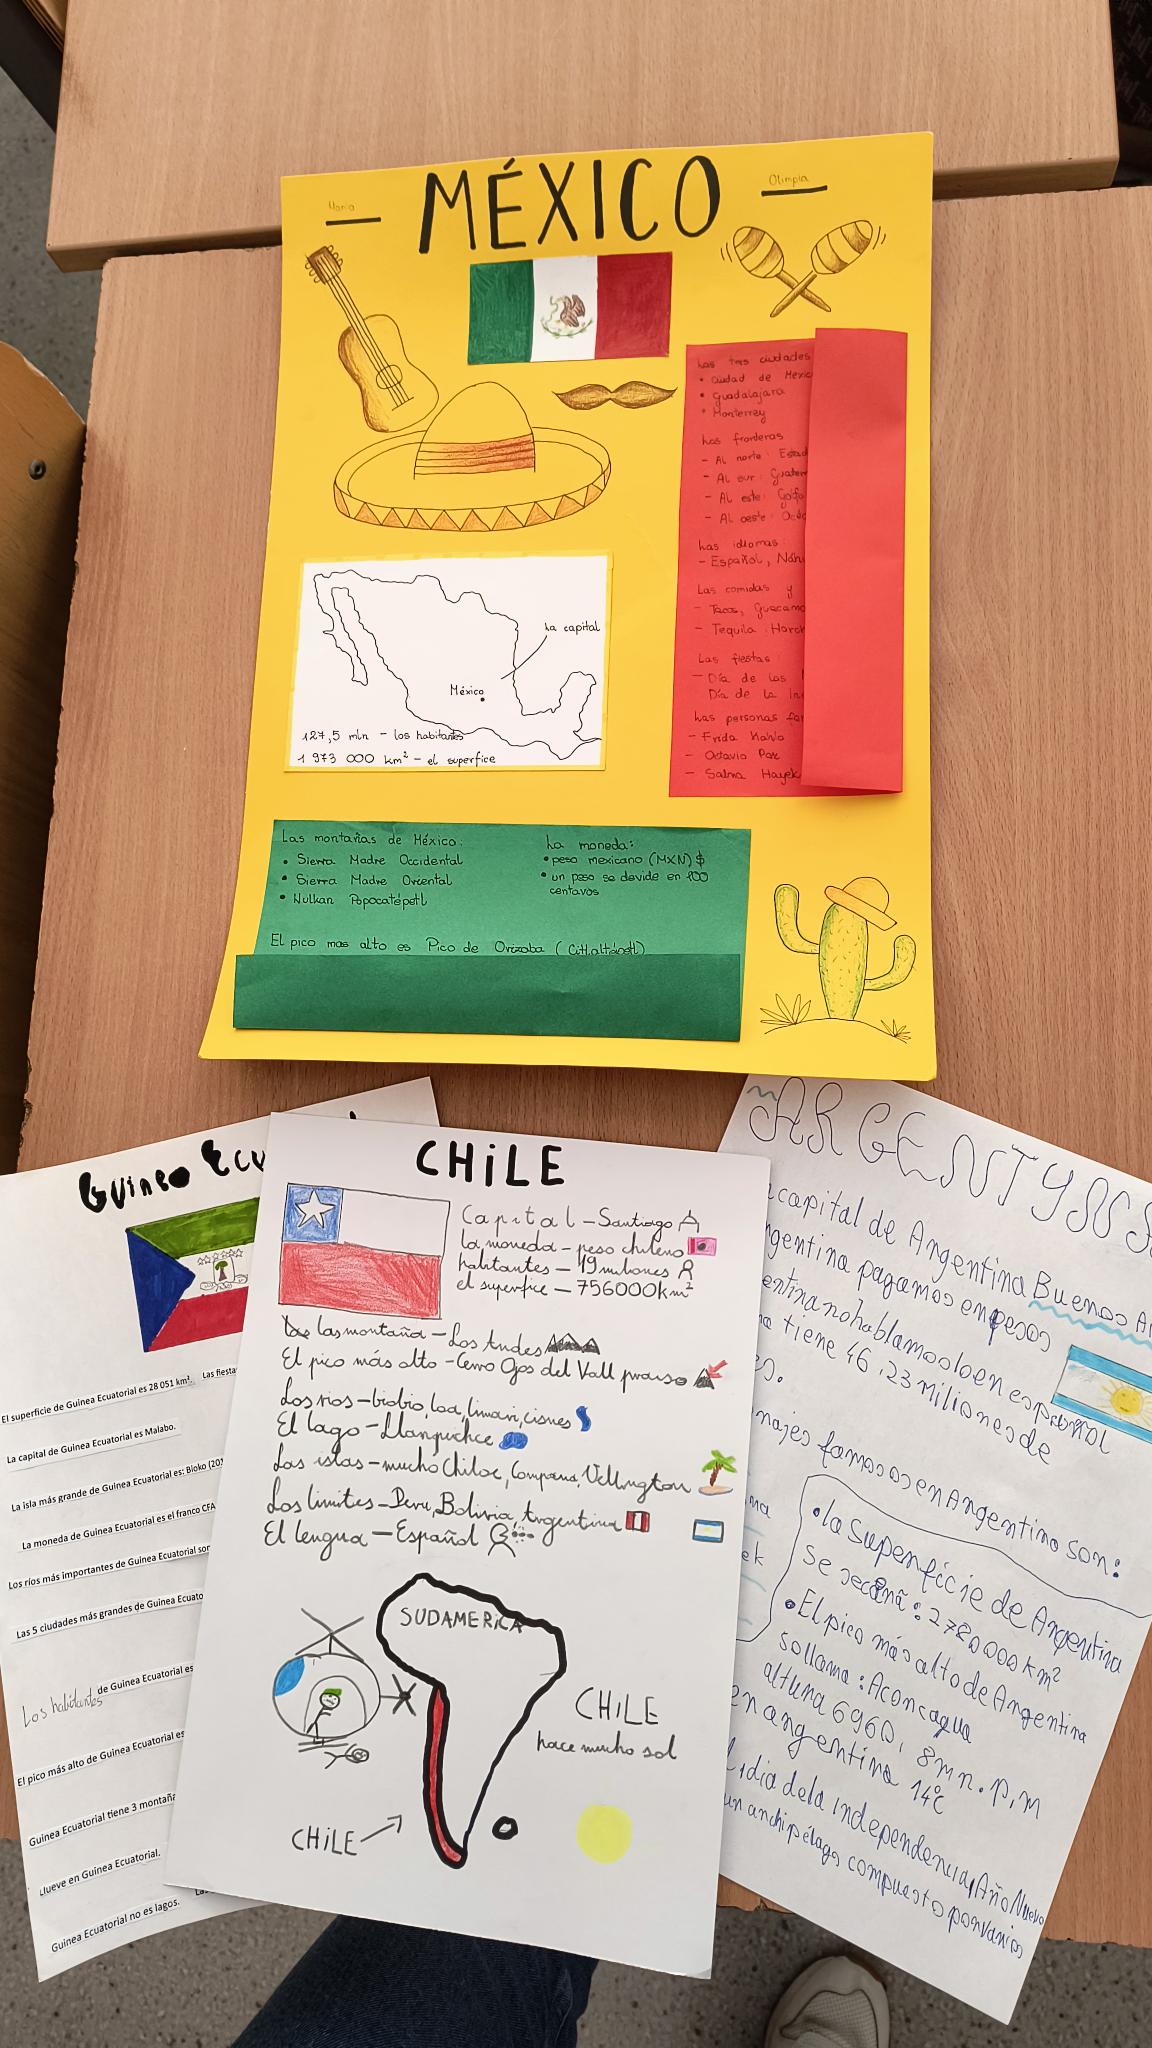 MÉXICO
Maria
Olimpia
Las tres ciudades
• Ciudad de México
• Guadalajara
• Monterrey
Las fronteras
- Al norte: Estad
- Al sur: Guatem
- Al este: Golfo
- Al oeste: Océa
Las idiomas:
- Español, Náh
Las comidas y
- Tacos, Guacamo
- Tequila Horch
Las fiestas:
- Día de los
Día de la In
Las personas fam
- Frida Kahlo
- Octavio Paz
- Salma Hayek
La capital
México
127,5 mln - los habitantes
1 973 000 km² - el superfice
Las montañas de México:
• Sierra Madre Occidental
• Sierra Madre Oriental
• Wulkan Popocatépetl
La moneda:
• peso mexicano (MXN) $
• un peso se devide en 100
centavos
El pico mas alto es Pico de Orizaba (Citlaltépetl)
Guineo Ecu
El superficie de Guinea Ecuatorial es 28 051 km². Las fiestas
La capital de Guinea Ecuatorial es Malabo.
La isla más grande de Guinea Ecuatorial es: Bioko (201
La moneda de Guinea Ecuatorial es el franco CFA
Los ríos más importantes de Guinea Ecuatorial son
Las 5 ciudades más grandes de Guinea Ecuato
Los habitantes de Guinea Ecuatorial es
El pico más alto de Guinea Ecuatorial es
Guinea Ecuatorial tiene 3 montaña
Llueve en Guinea Ecuatorial.
Guinea Ecuatorial no es lagos.
CHiLE
Capital - Santiago
la moneda - peso chileno
habitantes - 19 miliones
el superfice - 756000km²
las montaña - Los Andes
El pico más alto - Cerro Ojos del Vall praiso
Los rios - biobio, loa, limari, cisnes
El lago - Llanquihce
Las islas - mucho Chiloe, Campana, Vellington
Los limites - Peru, Bolivia, Argentina
El lengua - Español
SUDAMERICA
CHiLE
hace mucho sol
CHiLE
ARGENTYNA
capital de Argentina Buenos Ai
rgentina pagamos en pesos
entina no hablamos lo en español
na tiene 46,23 miliones de
es.
najes famosos en Argentina son:
na
ek
• la Superficie de Argentina
se : 2780000 km²
• El pico más alto de Argentina
se llama: Aconcagua
altura 6960, 8 m n.p.m
en argentina 14°C
l dia de la independencia, Año Nuevo
un archipélago compuesto por varios